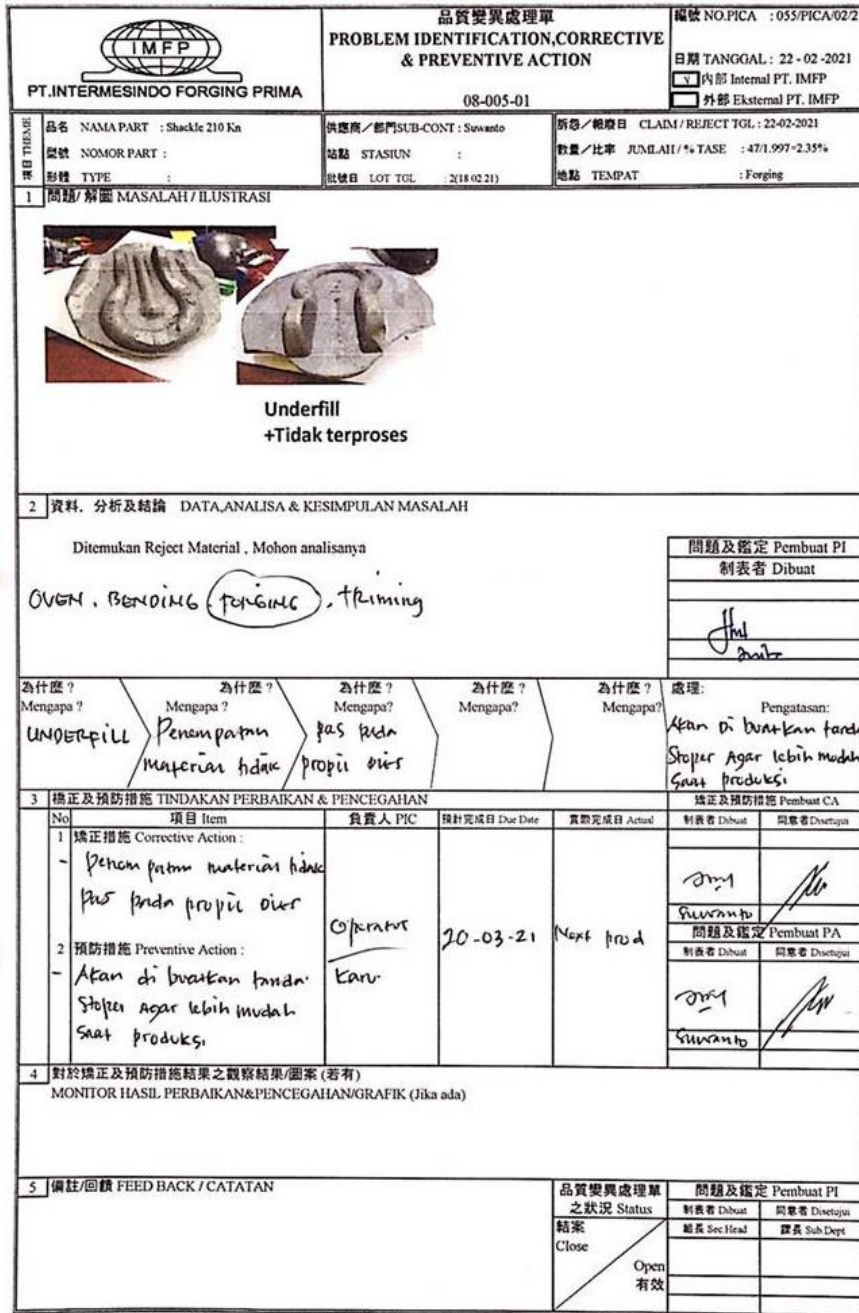 IMFP
PT.INTERMESINDO FORGING PRIMA
品質變異處理單
PROBLEM IDENTIFICATION,CORRECTIVE
& PREVENTIVE ACTION
08-005-01
編號 NO.PICA : 055/PICA/02/2
日期 TANGGAL : 22 - 02 -2021
v 內部 Internal PT. IMFP
外部 Eksternal PT. IMFP
項目 THEME
品名 NAMA PART : Shackle 210 Kn
型號 NOMOR PART :
形體 TYPE :
供應商／部門SUB-CONT : Suwanto
站點 STASIUN :
批號日 LOT TGL : 2(18 02 21)
訴怨／報廢日 CLAIM / REJECT TGL : 22-02-2021
數量／比率 JUMLAH / % TASE : 47/1.997=2.35%
地點 TEMPAT : Forging
1 問題/ 解圖 MASALAH / ILUSTRASI
Underfill
+Tidak terproses
2 資料. 分析及結論 DATA,ANALISA & KESIMPULAN MASALAH
Ditemukan Reject Material , Mohon analisanya
OVEN. BENDING. FORGING, TRiming
問題及鑑定 Pembuat PI
制表者 Dibuat
為什麼 ? 為什麼 ? 為什麼 ? 為什麼 ? 為什麼 ?
Mengapa ? Mengapa ? Mengapa? Mengapa? Mengapa?
UNDERFILL
Penempatan
material tidak
pas pada
propil dies
處理:
Pengatasan:
Akan Di buatkan tanda
Stoper Agar lebih mudah
Saat produksi
3 橋正及預防措施 TINDAKAN PERBAIKAN & PENCEGAHAN
矯正及預防措施 Pembuat CA
No 項目 Item 負責人 PIC 預計完成日 Due Date 實際完成日 Actual 制表者 Dibuat 同意者 Disetujui
1 矯正措施 Corrective Action :
- Penempatan material tidak
pas pada propil dies
Operator
Karu.
20-03-21
Next prod
Suwanto
問題及鑑定 Pembuat PA
制表者 Dibuat 同意者 Disetujui
2 預防措施 Preventive Action :
- Akan di buatkan tanda.
Stoper Agar lebih mudah
Saat produksi
Suwanto
4 對於矯正及預防措施結果之觀察結果/圖案 (若有)
MONITOR HASIL PERBAIKAN&PENCEGAHAN/GRAFIK (Jika ada)
5 備註/回饋 FEED BACK / CATATAN
品質變異處理單
之狀況 Status
結案
Close
Open
有效
問題及鑑定 Pembuat PI
制表者 Dibuat 同意者 Disetujui
組長 Sec.Head 課長 Sub.Dept